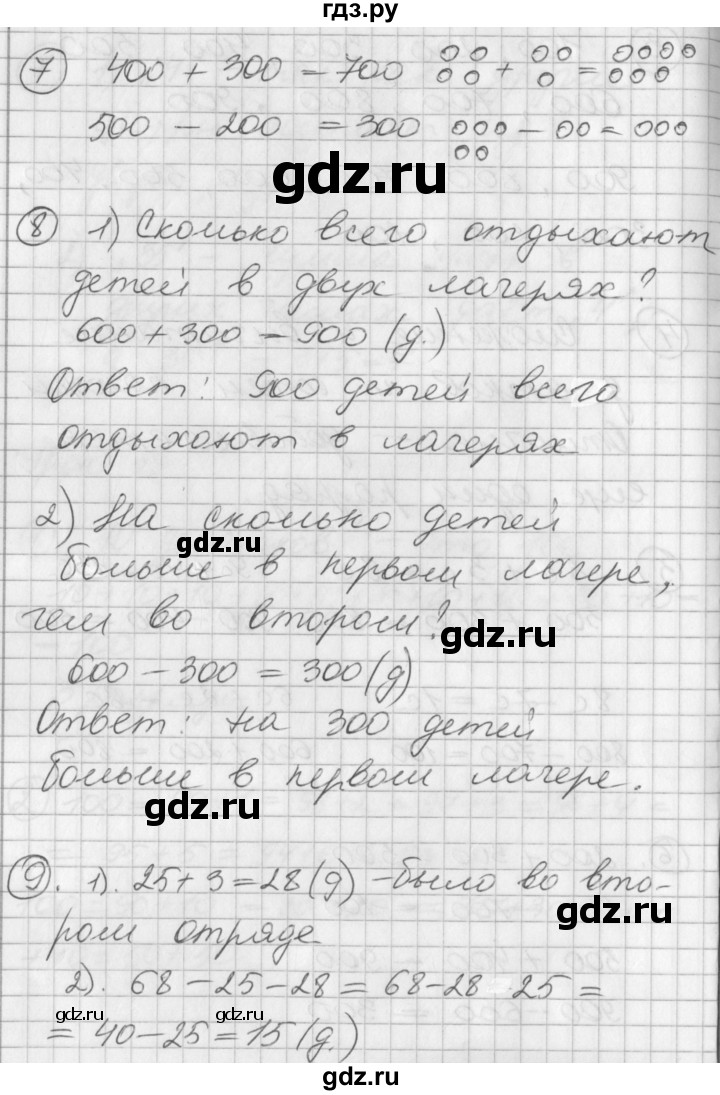 гдз.ру
7 400 + 300 = 700 оо оо + оо о = оооо ооо
500 - 200 = 300 ооо оо - оо = ооо
gdz.ru
8 1) Сколько всего отдыхают
детей в двух лагерях?
600 + 300 = 900 (д.)
Ответ: 900 детей всего
отдыхают в лагерях
2) На сколько детей
gdz.ru
больше в первом лагере,
чем во втором?
gdz.ru
600 - 300 = 300 (д)
Ответ: на 300 детей
больше в первом лагере.
gdz.ru
9. 1). 25 + 3 = 28 (д) - было во вто-
gdz.ru
ром отряде
2). 68 - 25 - 28 = 68 - 28 25 =
gdz.ru gdz.ru
= 40 - 25 = 15 (д.)
gdz.ru